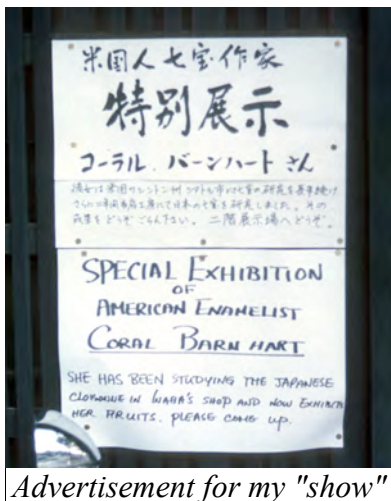 米国人七宝作家
特別展示
コーラル.バーンハートさん
彼女は米国ワシントン州シアトル市にて七宝の研究を
さらに 日本の七宝を研究しました。その
成果をどうぞごらん下さい。二階展示場へどうぞ。
SPECIAL EXHIBITION
OF
AMERICAN ENAMELIST
CORAL BARN HART
SHE HAS BEEN STUDYING THE JAPANESE
IN INABA'S SHOP AND NOW EXHIBITS
HER FRUITS. PLEASE COME UP.
Advertisement for my "show"